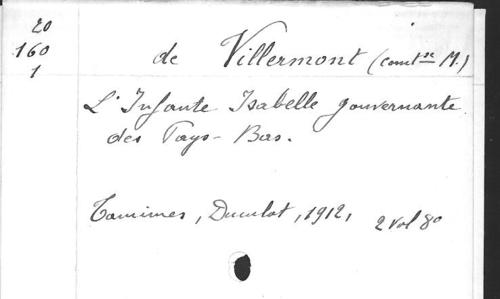 20
160
1
de Villermont (comtsse M.)
L'Infante Isabelle gouvernante
des Pays-Bas.
Tamines, Duculot, 1912, 2 vol 8o